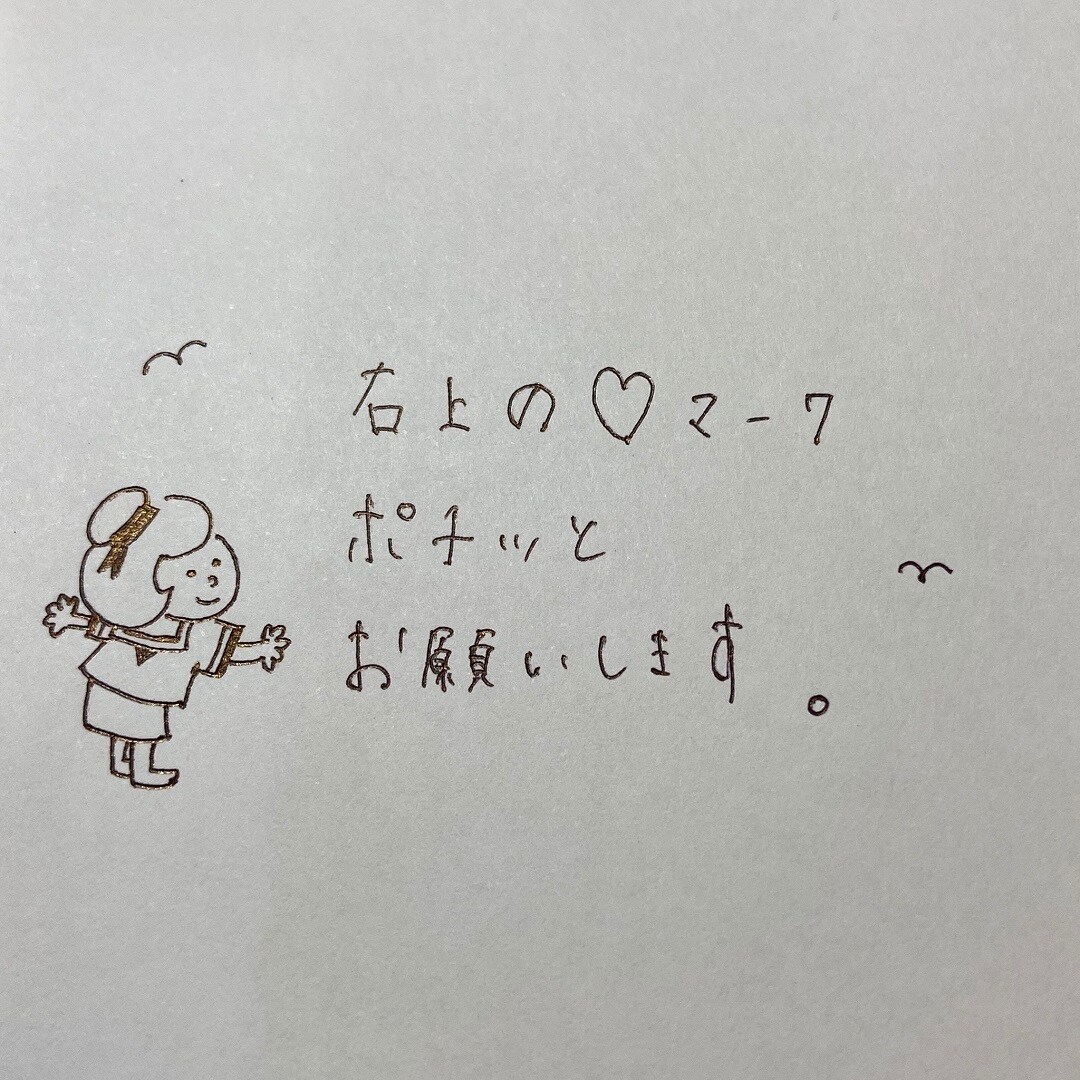 右上の♡マーク
ポチッと
お願いします。